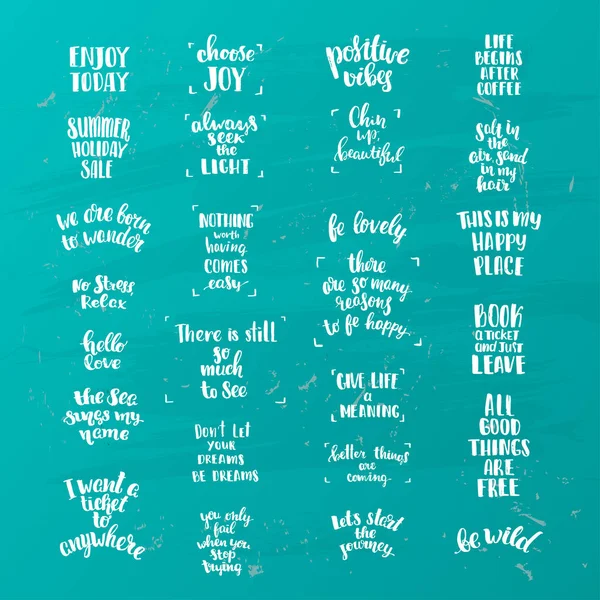 ENJOY
TODAY
SUMMER
HOLIDAY
SALE
we are born
to wander
No Stress
Relax
hello
love
the Sea
sings my
name
I want a
ticket
to
anywhere
choose
JOY
always
seek
the
LIGHT
NOTHING
worth
having
COMES
easy
There is still
so
much
to see
Don't Let
YOUR
DREAMS
BE DREAMS
you only
fail
when you
stop
trying
positive
vibes
Chin
up,
beautiful
be lovely
there
are so many
reasons
to be happy
GIVE LIFE
a
MEANING
better things
are
coming
Lets start
the
journey
LIFE
BEGINS
AFTER
COFFEE
Salt in
the
air, sand
in my
hair
THIS IS MY
HAPPY
PLACE
BOOK
A TICKET
and JUST
LEAVE
ALL
GOOD
THINGS
ARE
FREE
be wild